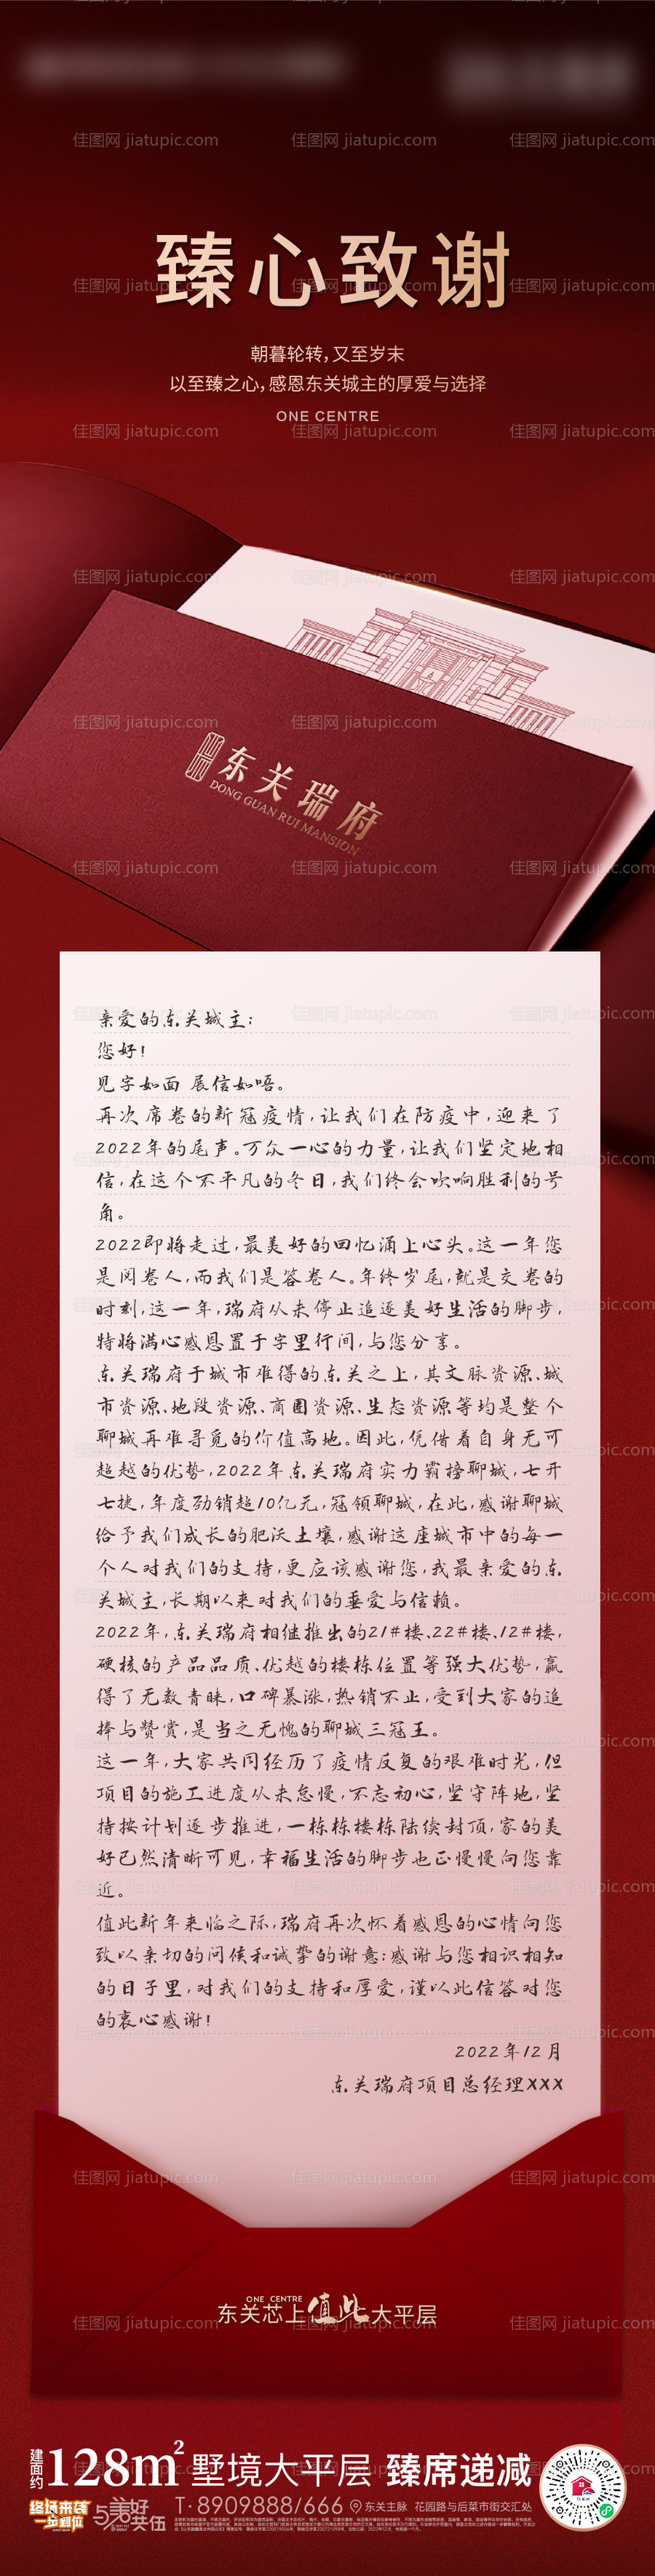 佳图网 jiatupic.com
臻心致谢
朝暮轮转,又至岁末
以至臻之心,感恩东关城主的厚爱与选择
ONE CENTRE
东关瑞府
DONG GUAN RUI MANSION
亲爱的东关城主:
您好!
见字如面 展信如唔。
再次席卷的新冠疫情,让我们在防疫中,迎来了
2022年的尾声。万众一心的力量,让我们坚定地相
信,在这个不平凡的冬日,我们终会吹响胜利的号
角。
2022即将走过,最美好的回忆涌上心头。这一年您
是阅卷人,而我们是答卷人。年终岁尾,就是交卷的
时刻,这一年,瑞府从未停止追逐美好生活的脚步,
特将满心感恩置于字里行间,与您分享。
东关瑞府于城市难得的东关之上,其文脉资源、城
市资源、地段资源、商圈资源、生态资源等均是整个
聊城再难寻觅的价值高地。因此,凭借着自身无可
超越的优势,2022年东关瑞府实力霸榜聊城,七开
七捷,年度劲销超10亿元,冠领聊城,在此,感谢聊城
给予我们成长的肥沃土壤,感谢这座城市中的每一
个人对我们的支持,更应该感谢您,我最亲爱的东
关城主,长期以来对我们的垂爱与信赖。
2022年,东关瑞府相继推出的21#楼、22#楼、12#楼,
硬核的产品品质、优越的楼栋位置等强大优势,赢
得了无数青睐,口碑暴涨,热销不止,受到大家的追
捧与赞赏,是当之无愧的聊城三冠王。
这一年,大家共同经历了疫情反复的艰难时光,但
项目的施工进度从未怠慢,不忘初心,坚守阵地,坚
持按计划逐步推进,一栋栋楼栋陆续封顶,家的美
好已然清晰可见,幸福生活的脚步也正慢慢向您靠
近。
值此新年来临之际,瑞府再次怀着感恩的心情向您
致以亲切的问候和诚挚的谢意:感谢与您相识相知
的日子里,对我们的支持和厚爱,谨以此信答对您
的衷心感谢!
2022年12月
东关瑞府项目总经理XXX
ONE CENTRE
东关芯上值此大平层
建面约128m²墅境大平层 臻席递减
T·8909888/666 东关主脉 花园路与后菜市街交汇处